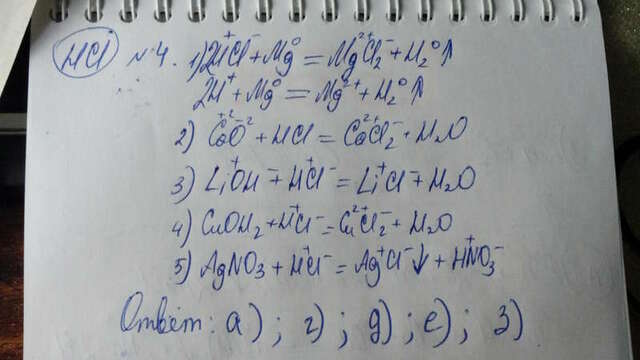 HCl №4. 1) 2H⁺Cl⁻ + Mg⁰ = Mg²⁺Cl₂⁻ + H₂⁰↑
2H⁺ + Mg⁰ = Mg²⁺ + H₂⁰↑
2) Ca⁺²O⁻² + HCl = Ca²⁺Cl₂⁻ + H₂O
3) Li⁺OH⁻ + H⁺Cl⁻ = Li⁺Cl⁻ + H₂O
4) CuOH₂ + H⁺Cl⁻ = Cu²⁺Cl₂⁻ + H₂O
5) AgNO₃ + H⁺Cl⁻ = Ag⁺Cl⁻↓ + H⁺NO₃⁻
Ответ: а) ; г) ; д) ; е) ; з)